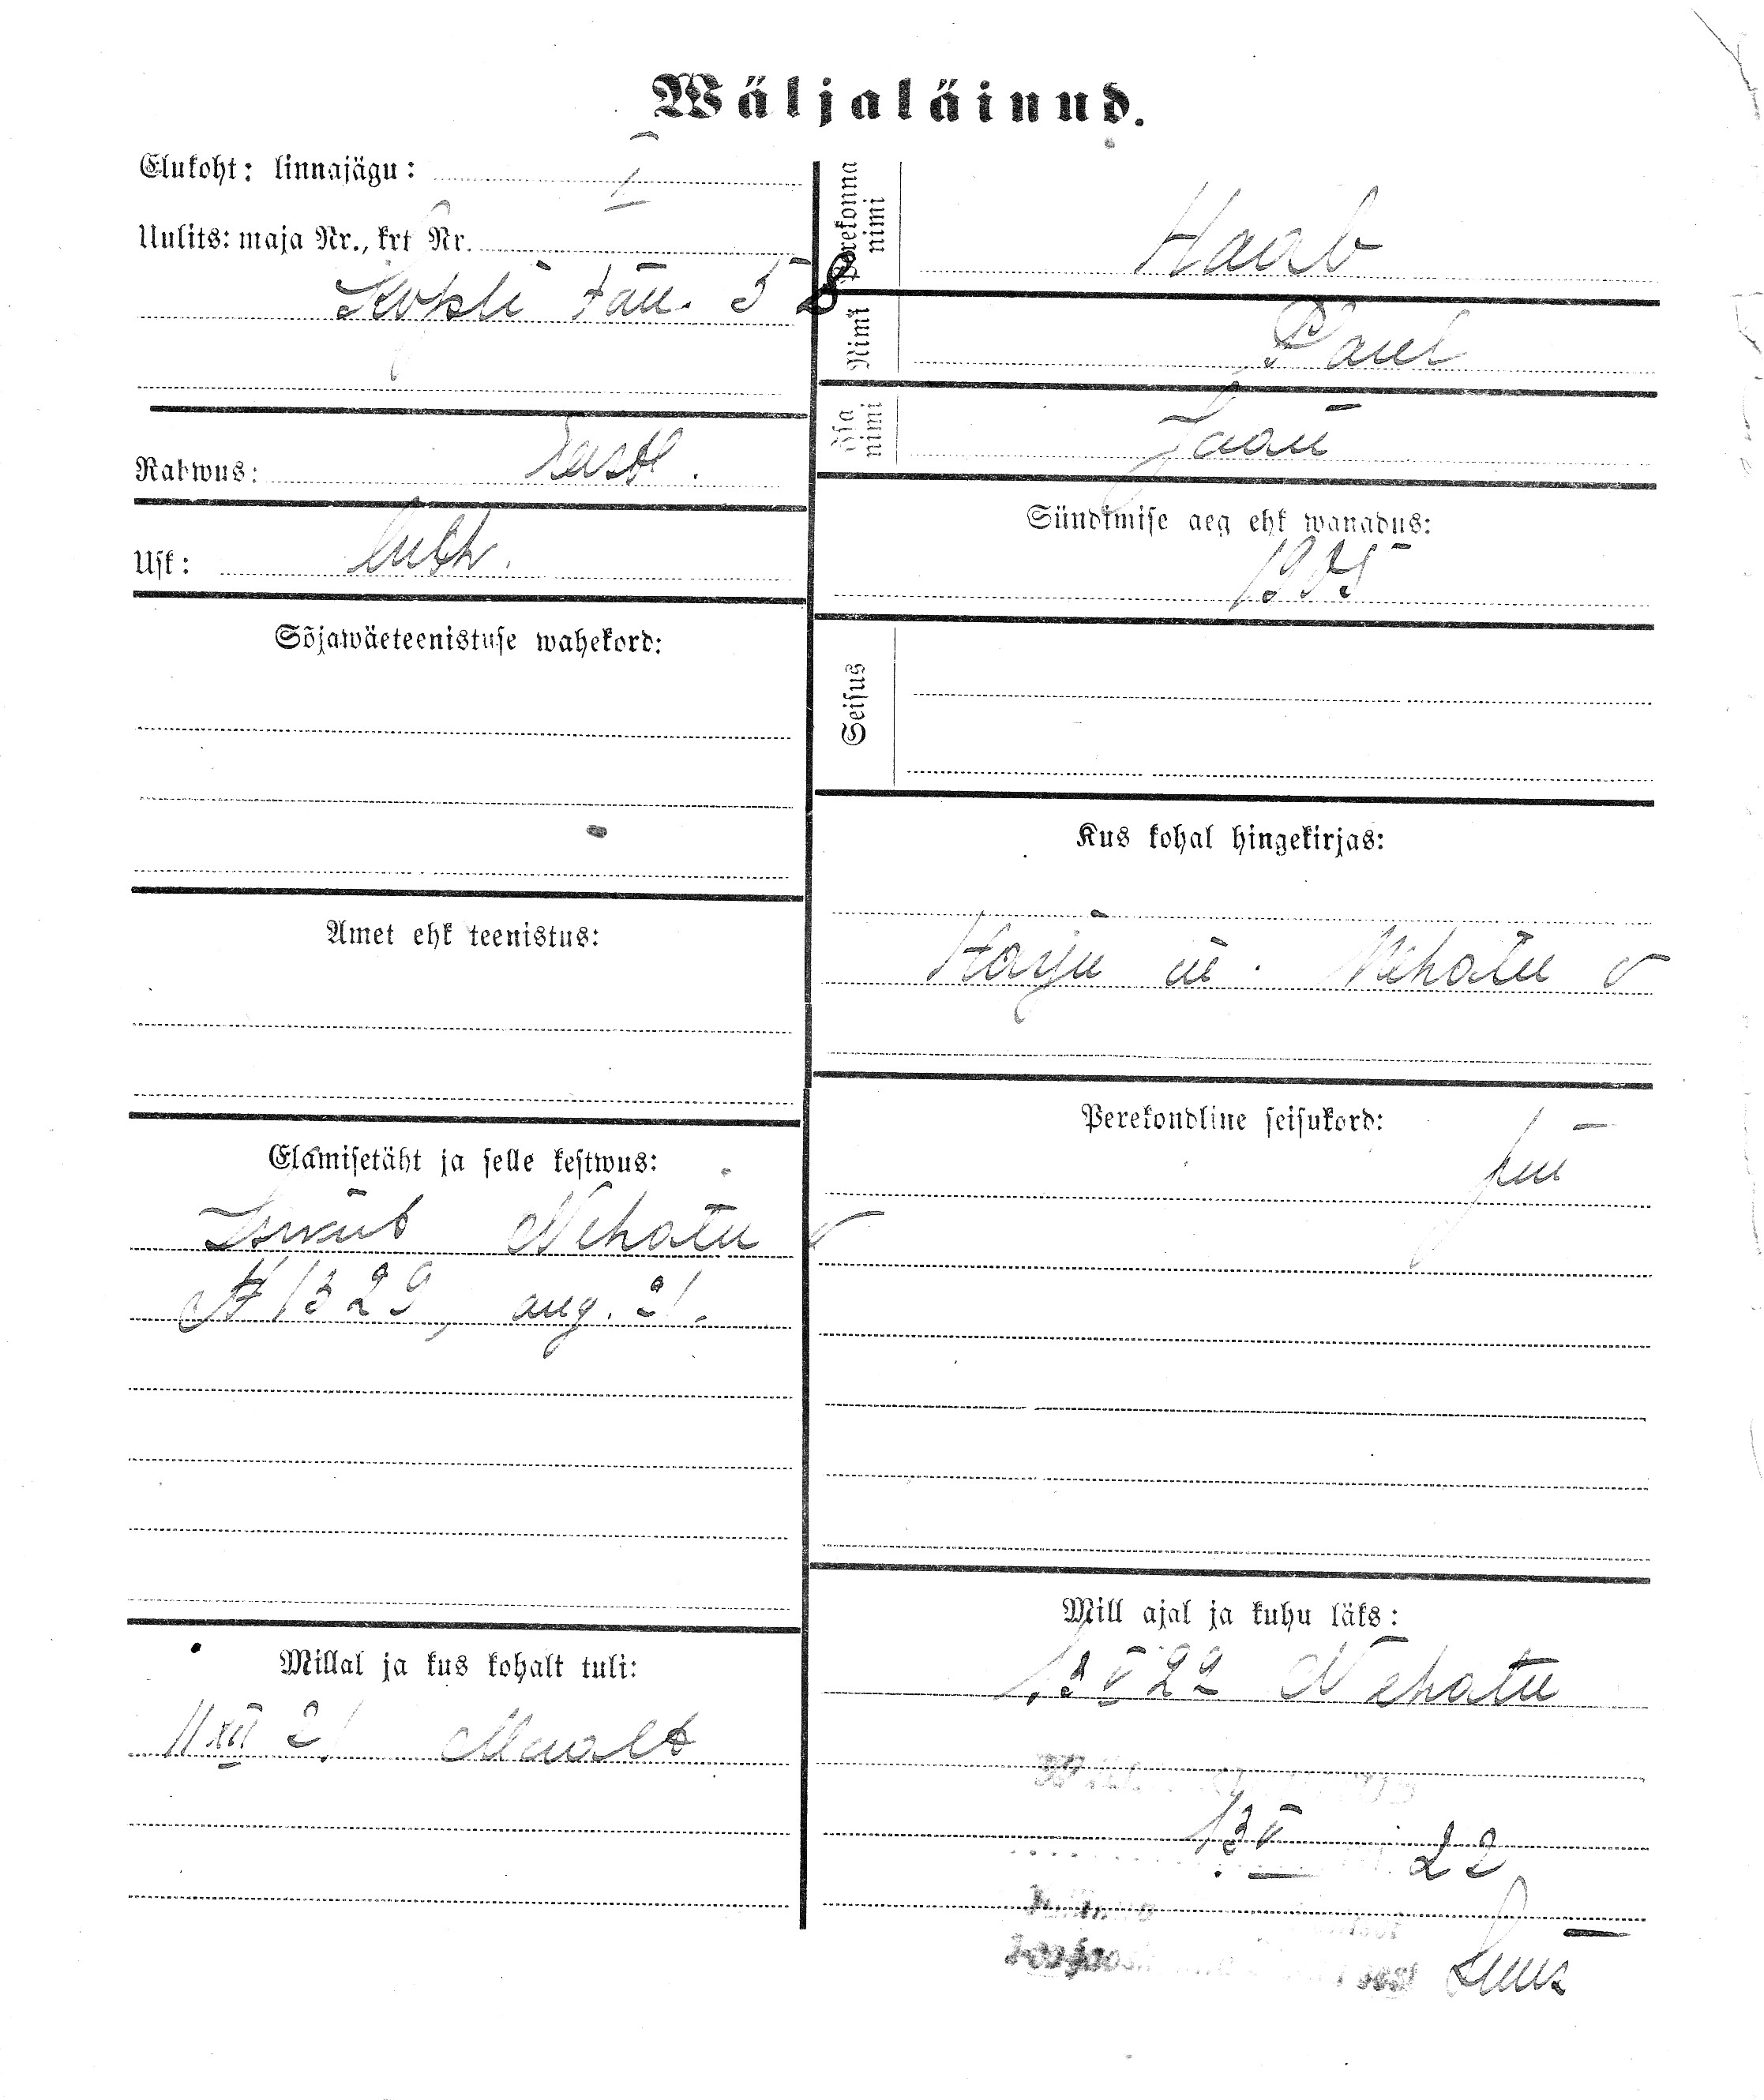 Wäljaläinud.
Elukoht: linnajägu: I
Uulits: maja Nr., krt Nr.
Kopli tän. 5 8
Rahwus: Eestl.
Usk: luth.
Sõjawäeteenistuse wahekord:
Amet ehk teenistus:
Elamisetäht ja selle kestwus:
Isikut Nehatu v
№ 1329, aug. 21.
Millal ja kus kohalt tuli:
11 XII 21 Maalt
Perekonna nimi Haab
Nimi Paul
Isa nimi Jaan
Sündimise aeg ehk wanadus:
1905
Seisus
Kus kohal hingekirjas:
Harju m. Nehatu v
Perekondline seisukord:
Mill ajal ja kuhu läks:
13 V 22 Nehatu
13 V 22